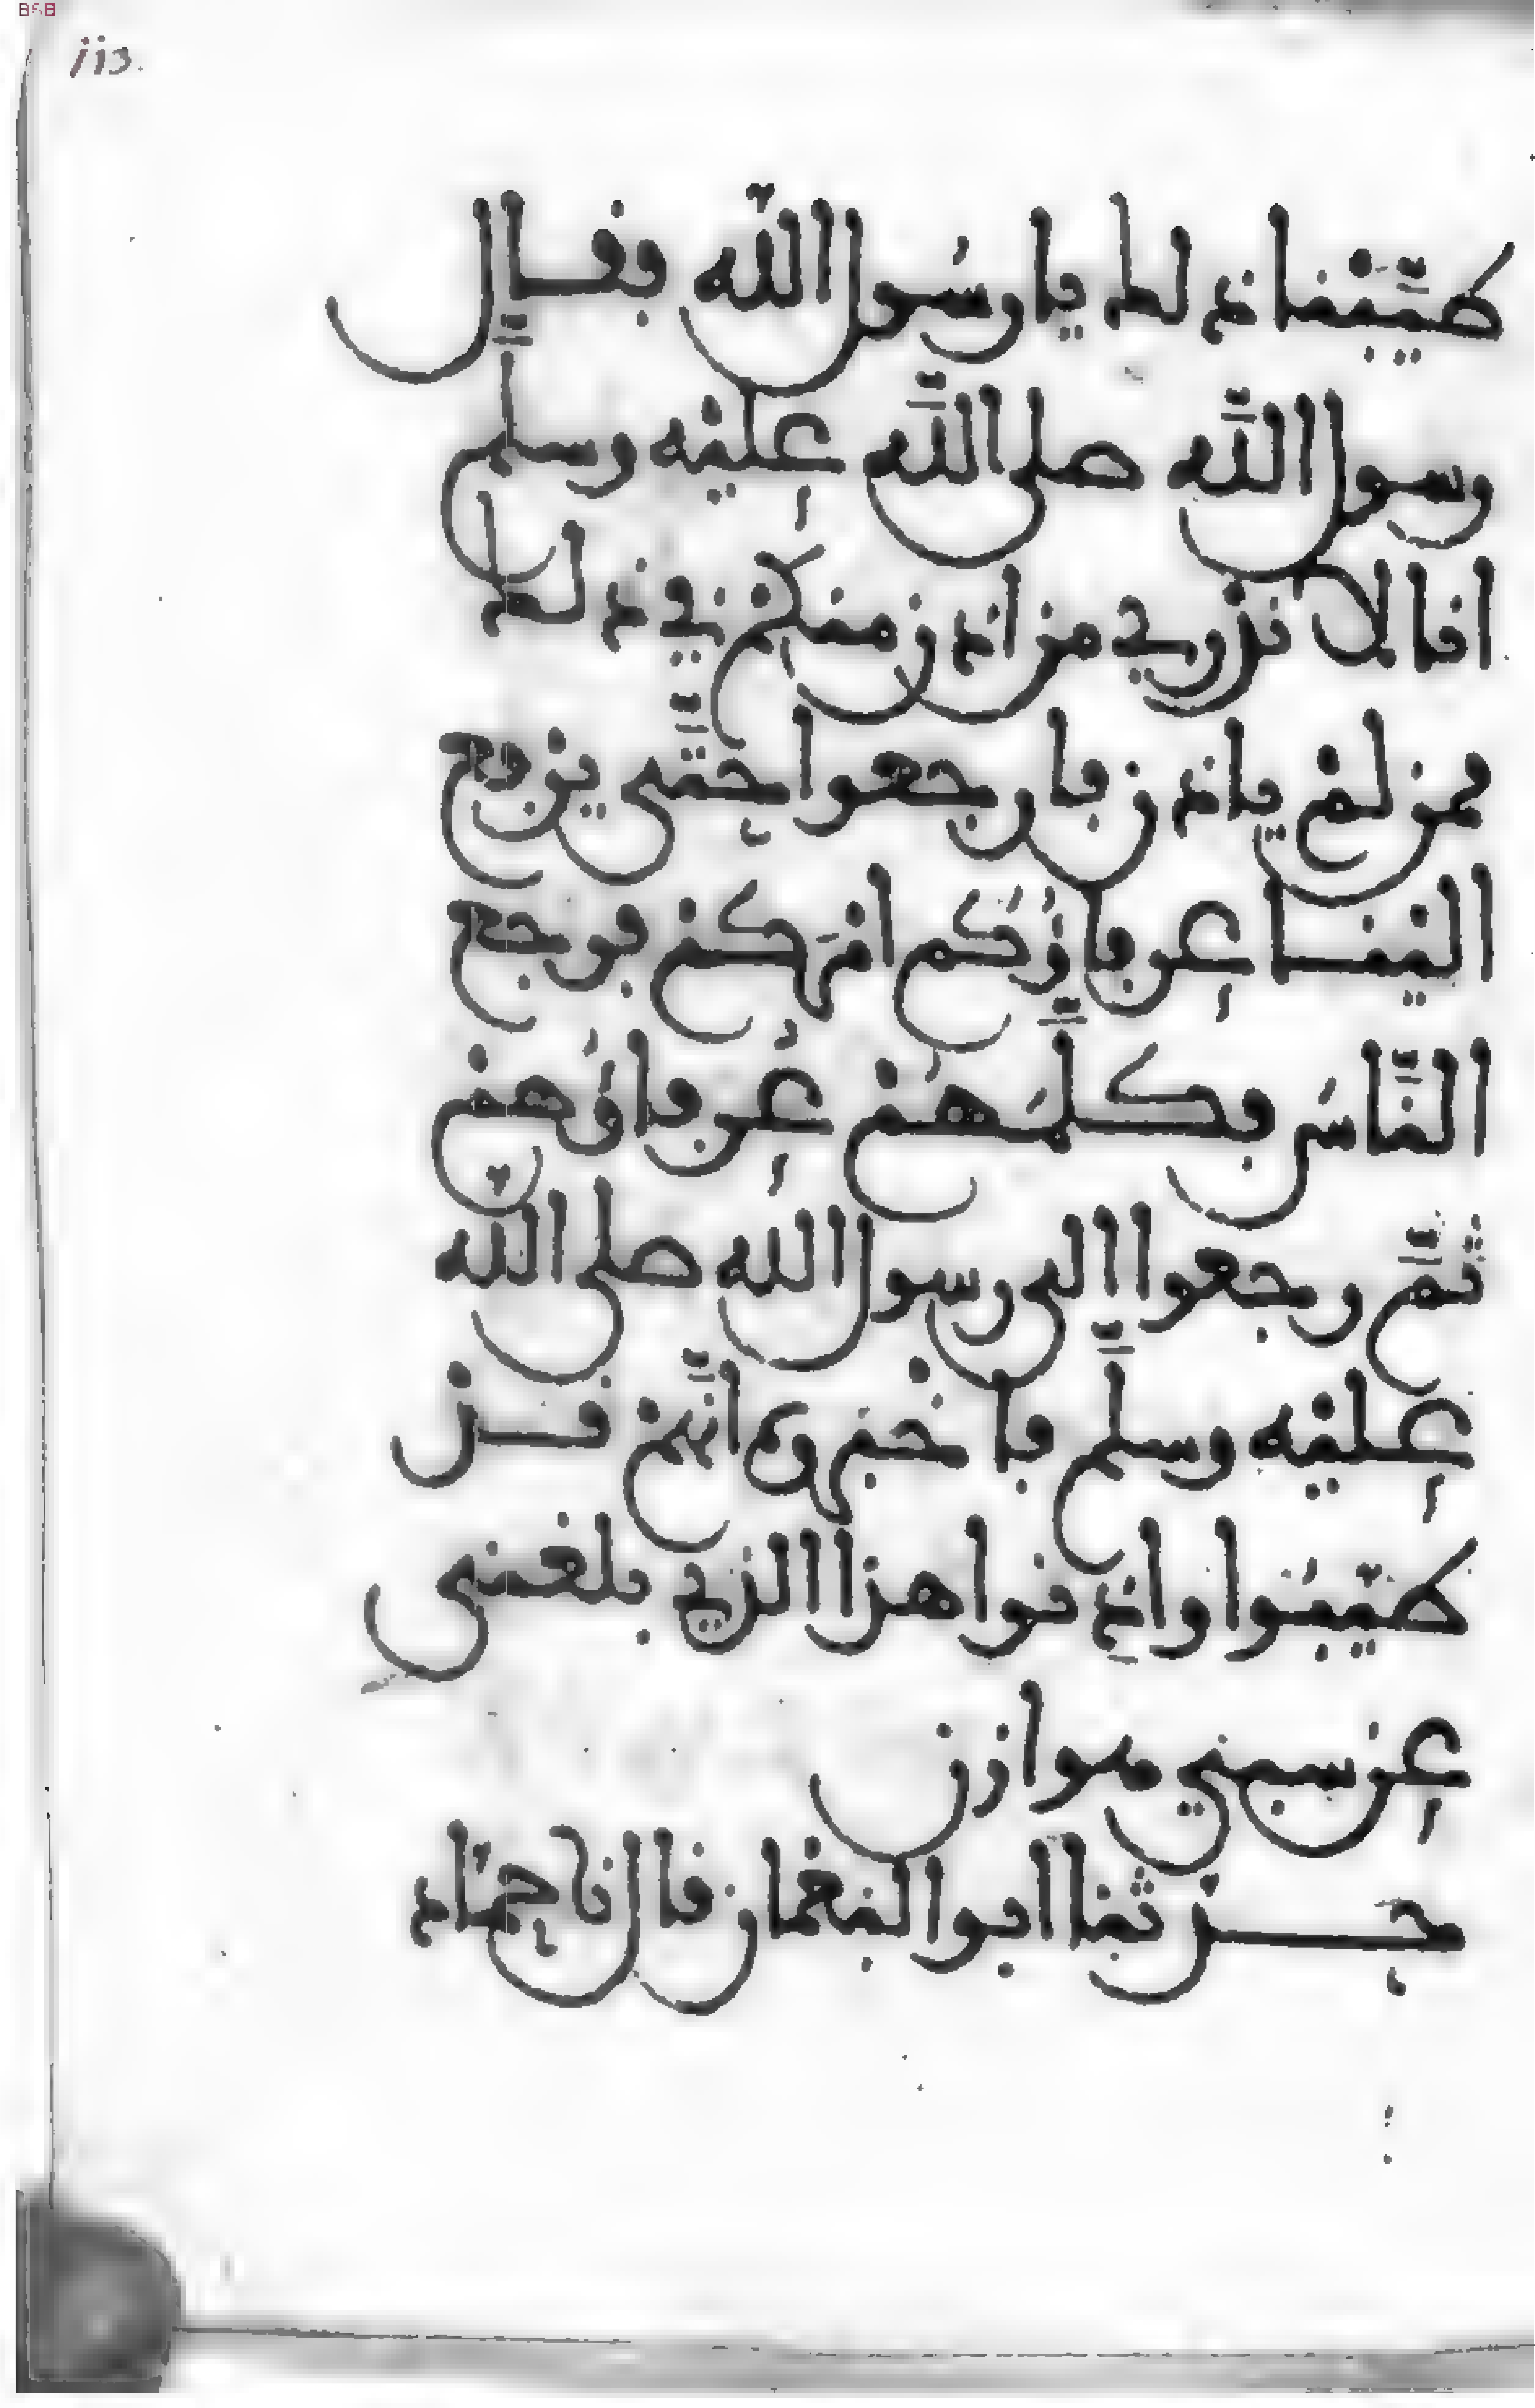 BSB
113.
طَيَّبْنا ذلك يا رسُول اللّه فقال
رسول اللَّه صلى اللَّه عليْه وسلَّم
انا لا ندري من اذن منكم في ذلك
ممن لمْ ياذن فارجعوا حتَّى يرفع
اليْنا عرفاؤُكم امْركمْ فرجع
النَّاسُ فكلَّمَهُمْ عُرفاؤُهمْ
ثمَّ رجعوا الى رسول اللّه صلى اللّه
عليْه وسلَّم فاخْبروه انَّهمْ قد
طيّبُوا واذنوا هذا الذي بلغني
عن سبي هوازن
حدثنا ابو النعْمان قال نا حمّاد